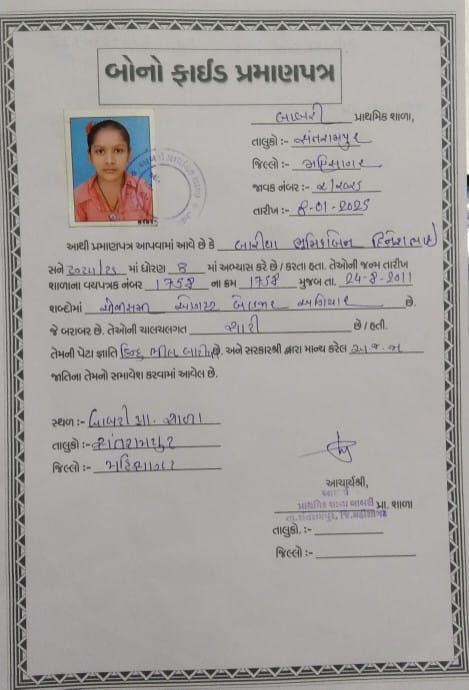 બોનો ફાઈડ પ્રમાણપત્ર
બાબરી પ્રાથમિક શાળા,
તાલુકો :- સંતરામપુર
જિલ્લો :- મહિસાગર
જાવક નંબર :-
તારીખ :- 8-01-2025
આથી પ્રમાણપત્ર આપવામાં આવે છે કે બારીયા ભુમિકાબેન દિનેશભાઈ
સને 2024/25 માં ધોરણ 8 માં અભ્યાસ કરે છે / કરતા હતા. તેઓની જન્મ તારીખ
શાળાના વયપત્રક નંબર 1758 ના ક્રમ 1758 મુજબ તા. 24-8-2011
શબ્દોમાં ચોવીસમી ઓગષ્ટ બે હજાર અગિયાર છે.
જે બરાબર છે. તેઓની ચાલચલગત સારી છે / હતી.
તેમની પેટા જ્ઞાતિ હિન્દુ ભીલ છે. અને સરકારશ્રી દ્વારા માન્ય કરેલ અ.જ.જા
જાતિના તેમનો સમાવેશ કરવામાં આવેલ છે.
સ્થળ :- બાબરી પ્રા. શાળા
તાલુકો :- સંતરામપુર
જિલ્લો :- મહિસાગર
આચાર્યશ્રી,
આચાર્ય
પ્રાથમિક શાળા બાબરી પ્રા. શાળા
તા.સંતરામપુર, જિ.મહીસાગર
તાલુકો. :-
જિલ્લો :-